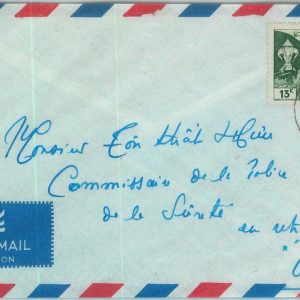 13
Monsieur Tôn Thất Hứu
Commissaire de la Police
de la Sûreté
en
MAIL
ION